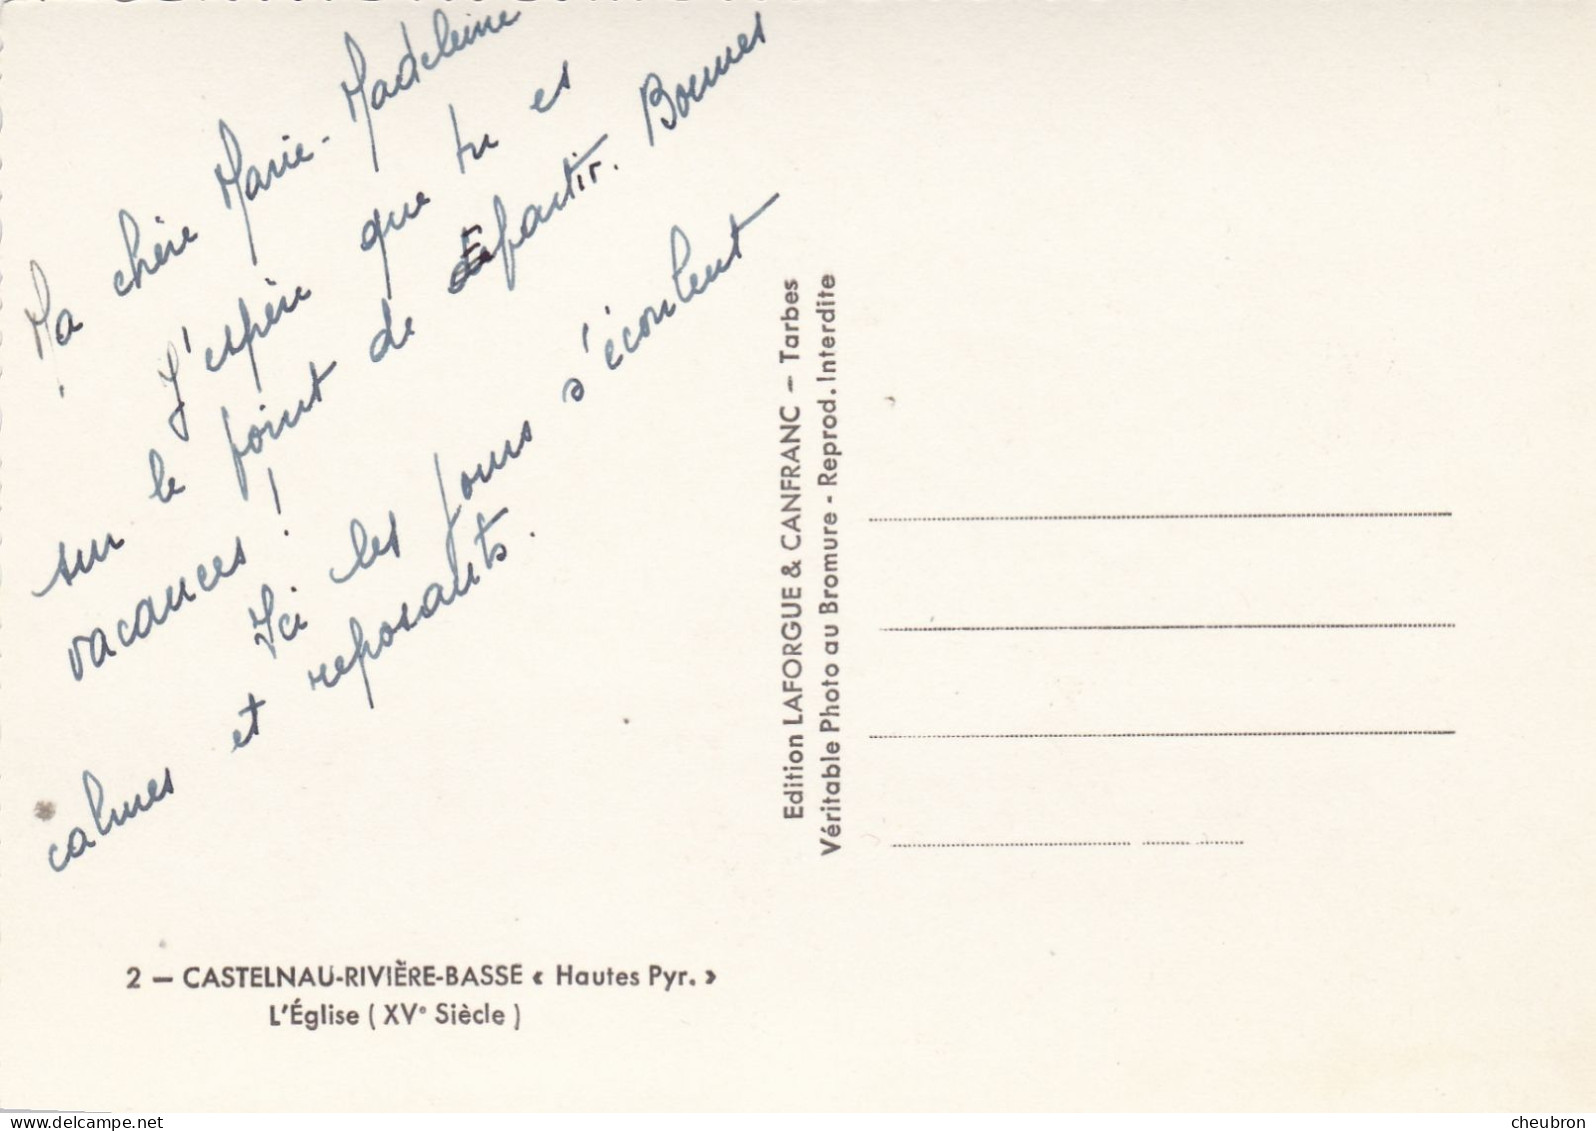 Ma chère Marie-Madeleine
J'espère que tu es
sur le point de partir. Bonnes
vacances !
Ici les jours s'écoulent
calmes et reposants.
2 — CASTELNAU-RIVIÈRE-BASSE « Hautes Pyr. »
L'Église ( XVe Siècle )
Edition LAFORGUE & CANFRANC — Tarbes
Véritable Photo au Bromure - Reprod. Interdite
delcampe.net
cheubron